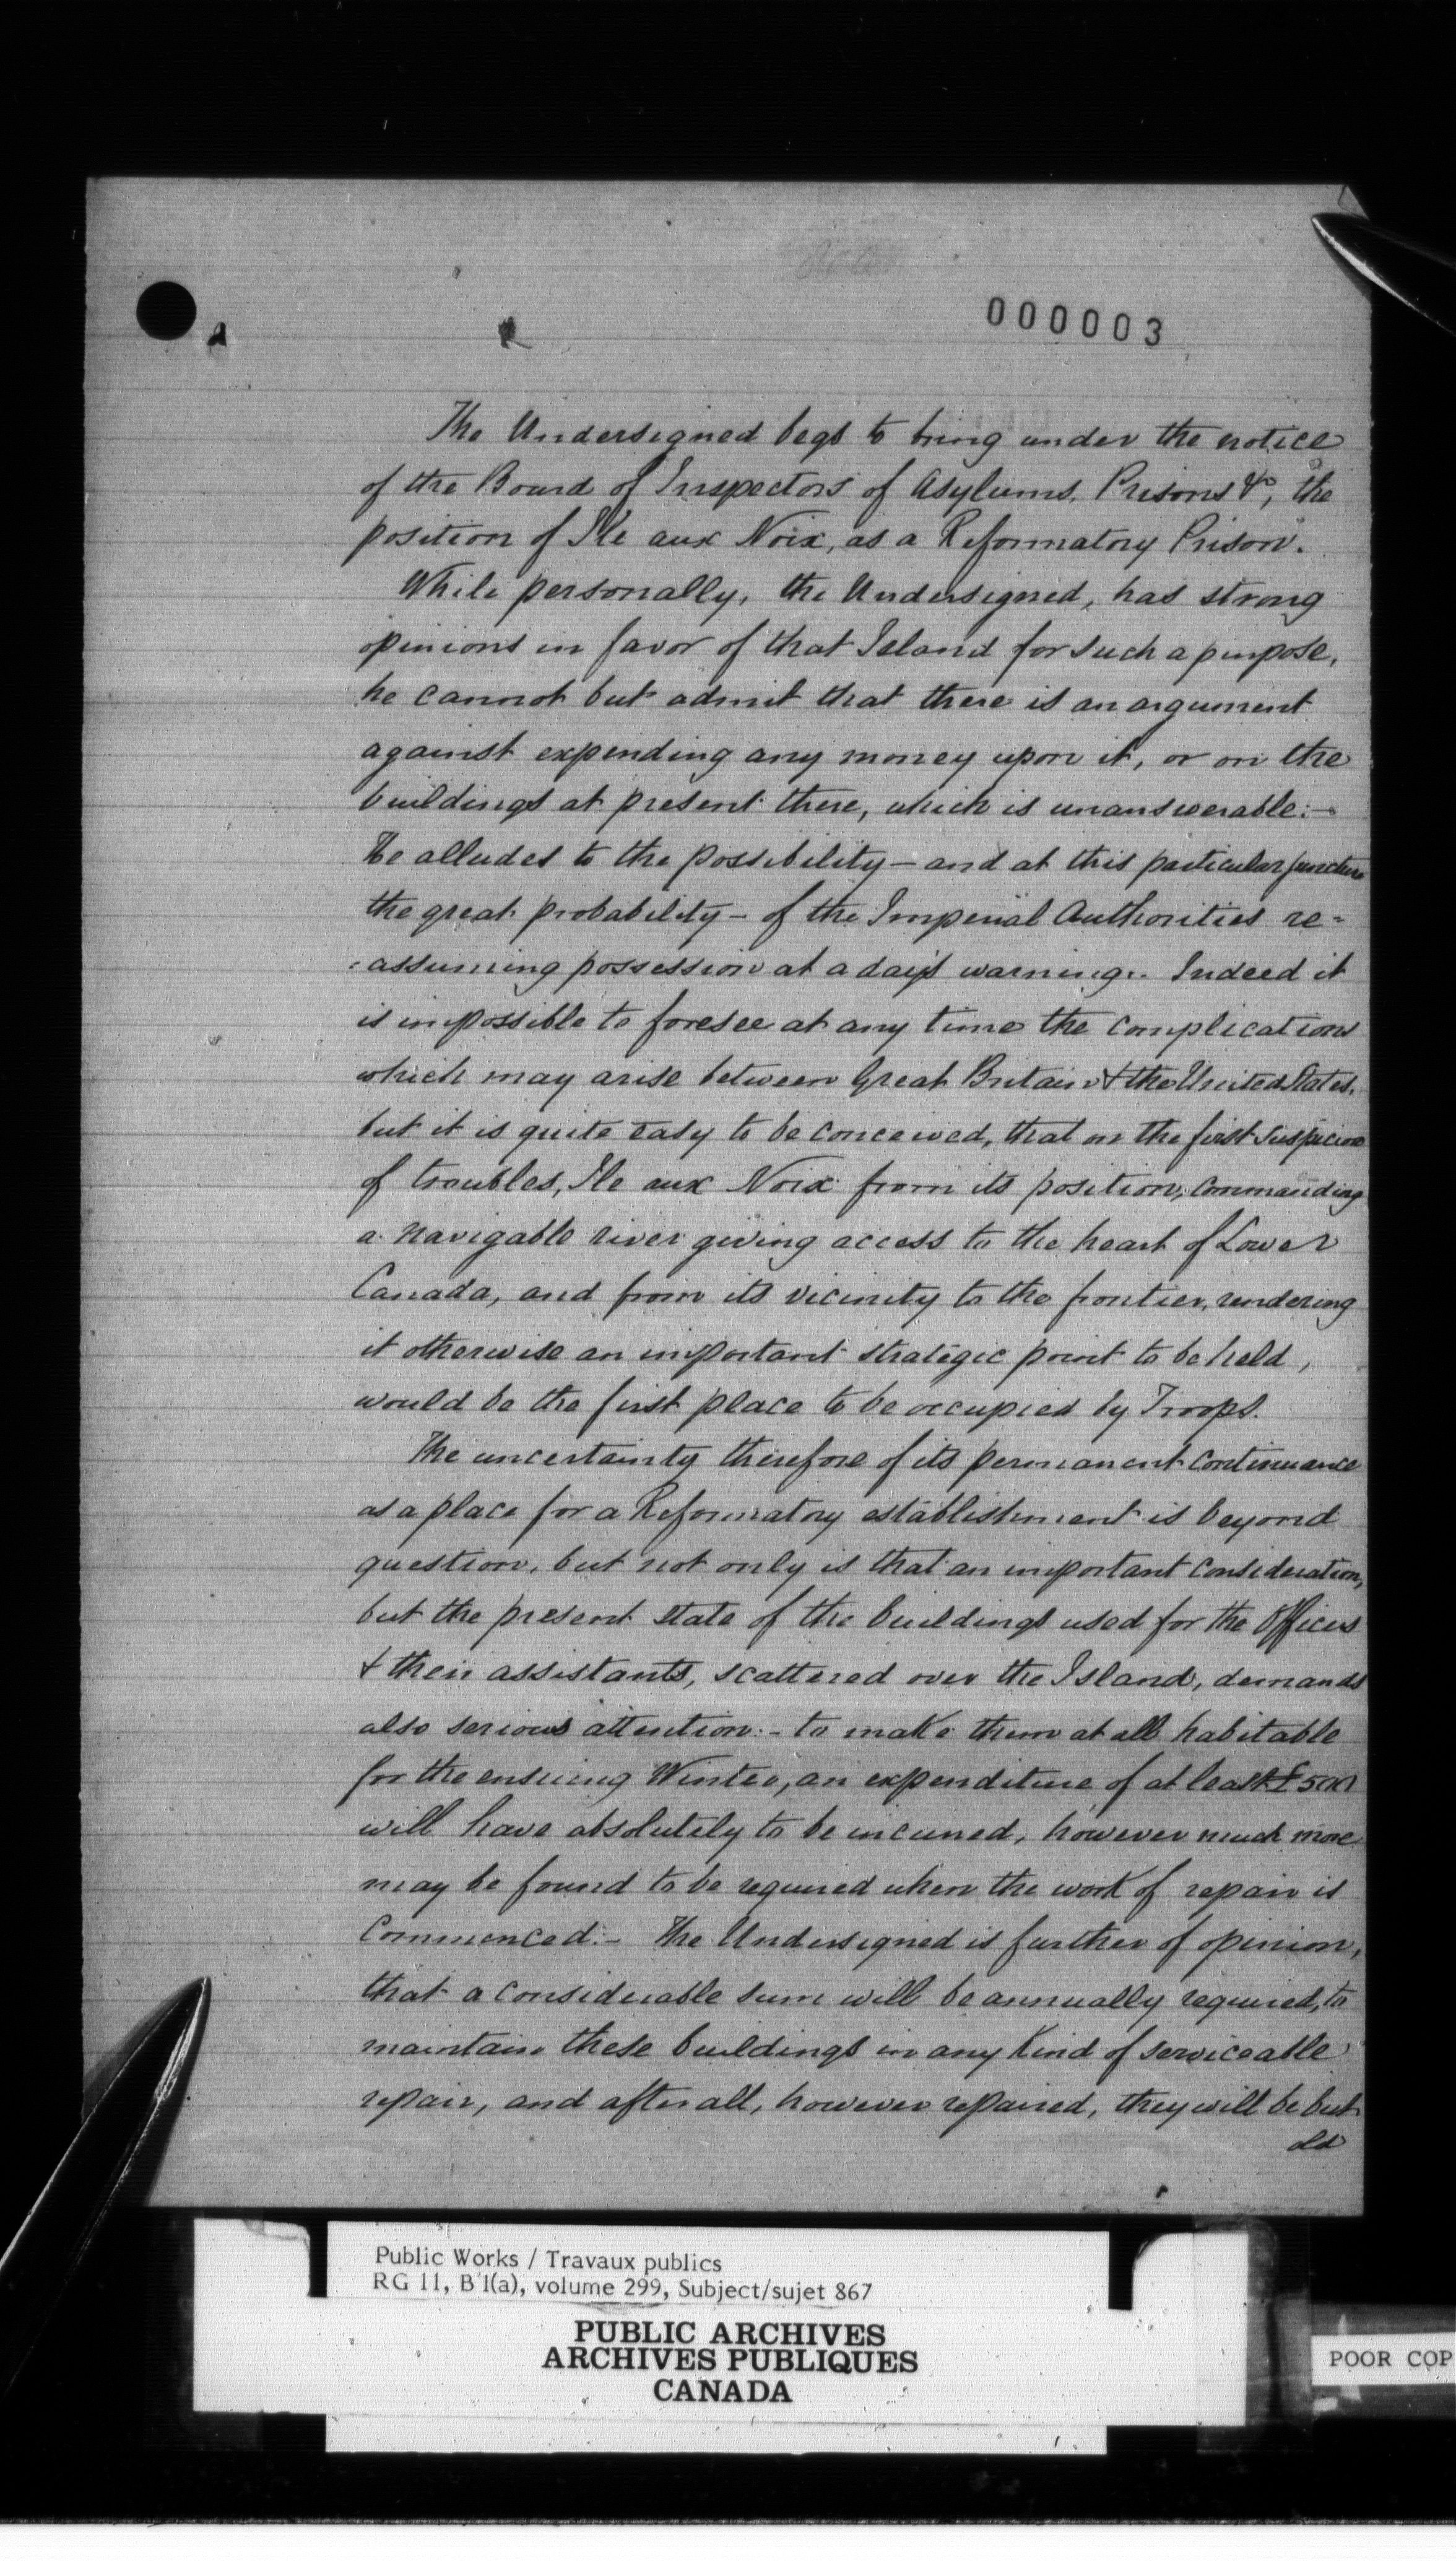 000003
The Undersigned begs to bring under the notice
of the Board of Inspectors of Asylums, Prisons &c, the
position of Ile aux Noix, as a Reformatory Prison.
While personally, the Undersigned, has strong
opinions in favor of that Island for such a purpose,
he cannot but admit that there is an argument
against expending any money upon it, or on the
buildings at present there, which is unanswerable:-
He alludes to the possibility - and at this particular juncture
the great probability - of the Imperial Authorities re=
=assuming possession at a day's warning. Indeed it
is impossible to foresee at any time the complications
which may arise between Great Britain & the United States.
but it is quite easy to be conceived, that on the first suspicion
of troubles, Ile aux Noix from its position, commanding
a navigable river giving access to the heart of Lower
Canada, and from its vicinity to the frontier, rendering
it otherwise an important strategic point to be held,
would be the first place to be occupied by Troops.
The uncertainty therefore of its permanent continuance
as a place for a Reformatory establishment is beyond
question, but not only is that an important consideration,
but the present state of the buildings used for the Officers
& their assistants, scattered over the Island, demands
also serious attention:- to make them at all habitable
for the ensuing Winter, an expenditure of at least £500
will have absolutely to be incurred, however much more
may be found to be required when the work of repair is
Commenced:- The Undersigned is further of opinion,
that a considerable sum will be annually required, to
maintain these buildings in any kind of serviceable
repair, and after all, however repaired, they will be but
old
Public Works / Travaux publics
RG 11, B 1(a), volume 299, Subject/sujet 867
PUBLIC ARCHIVES
ARCHIVES PUBLIQUES
CANADA
POOR COP